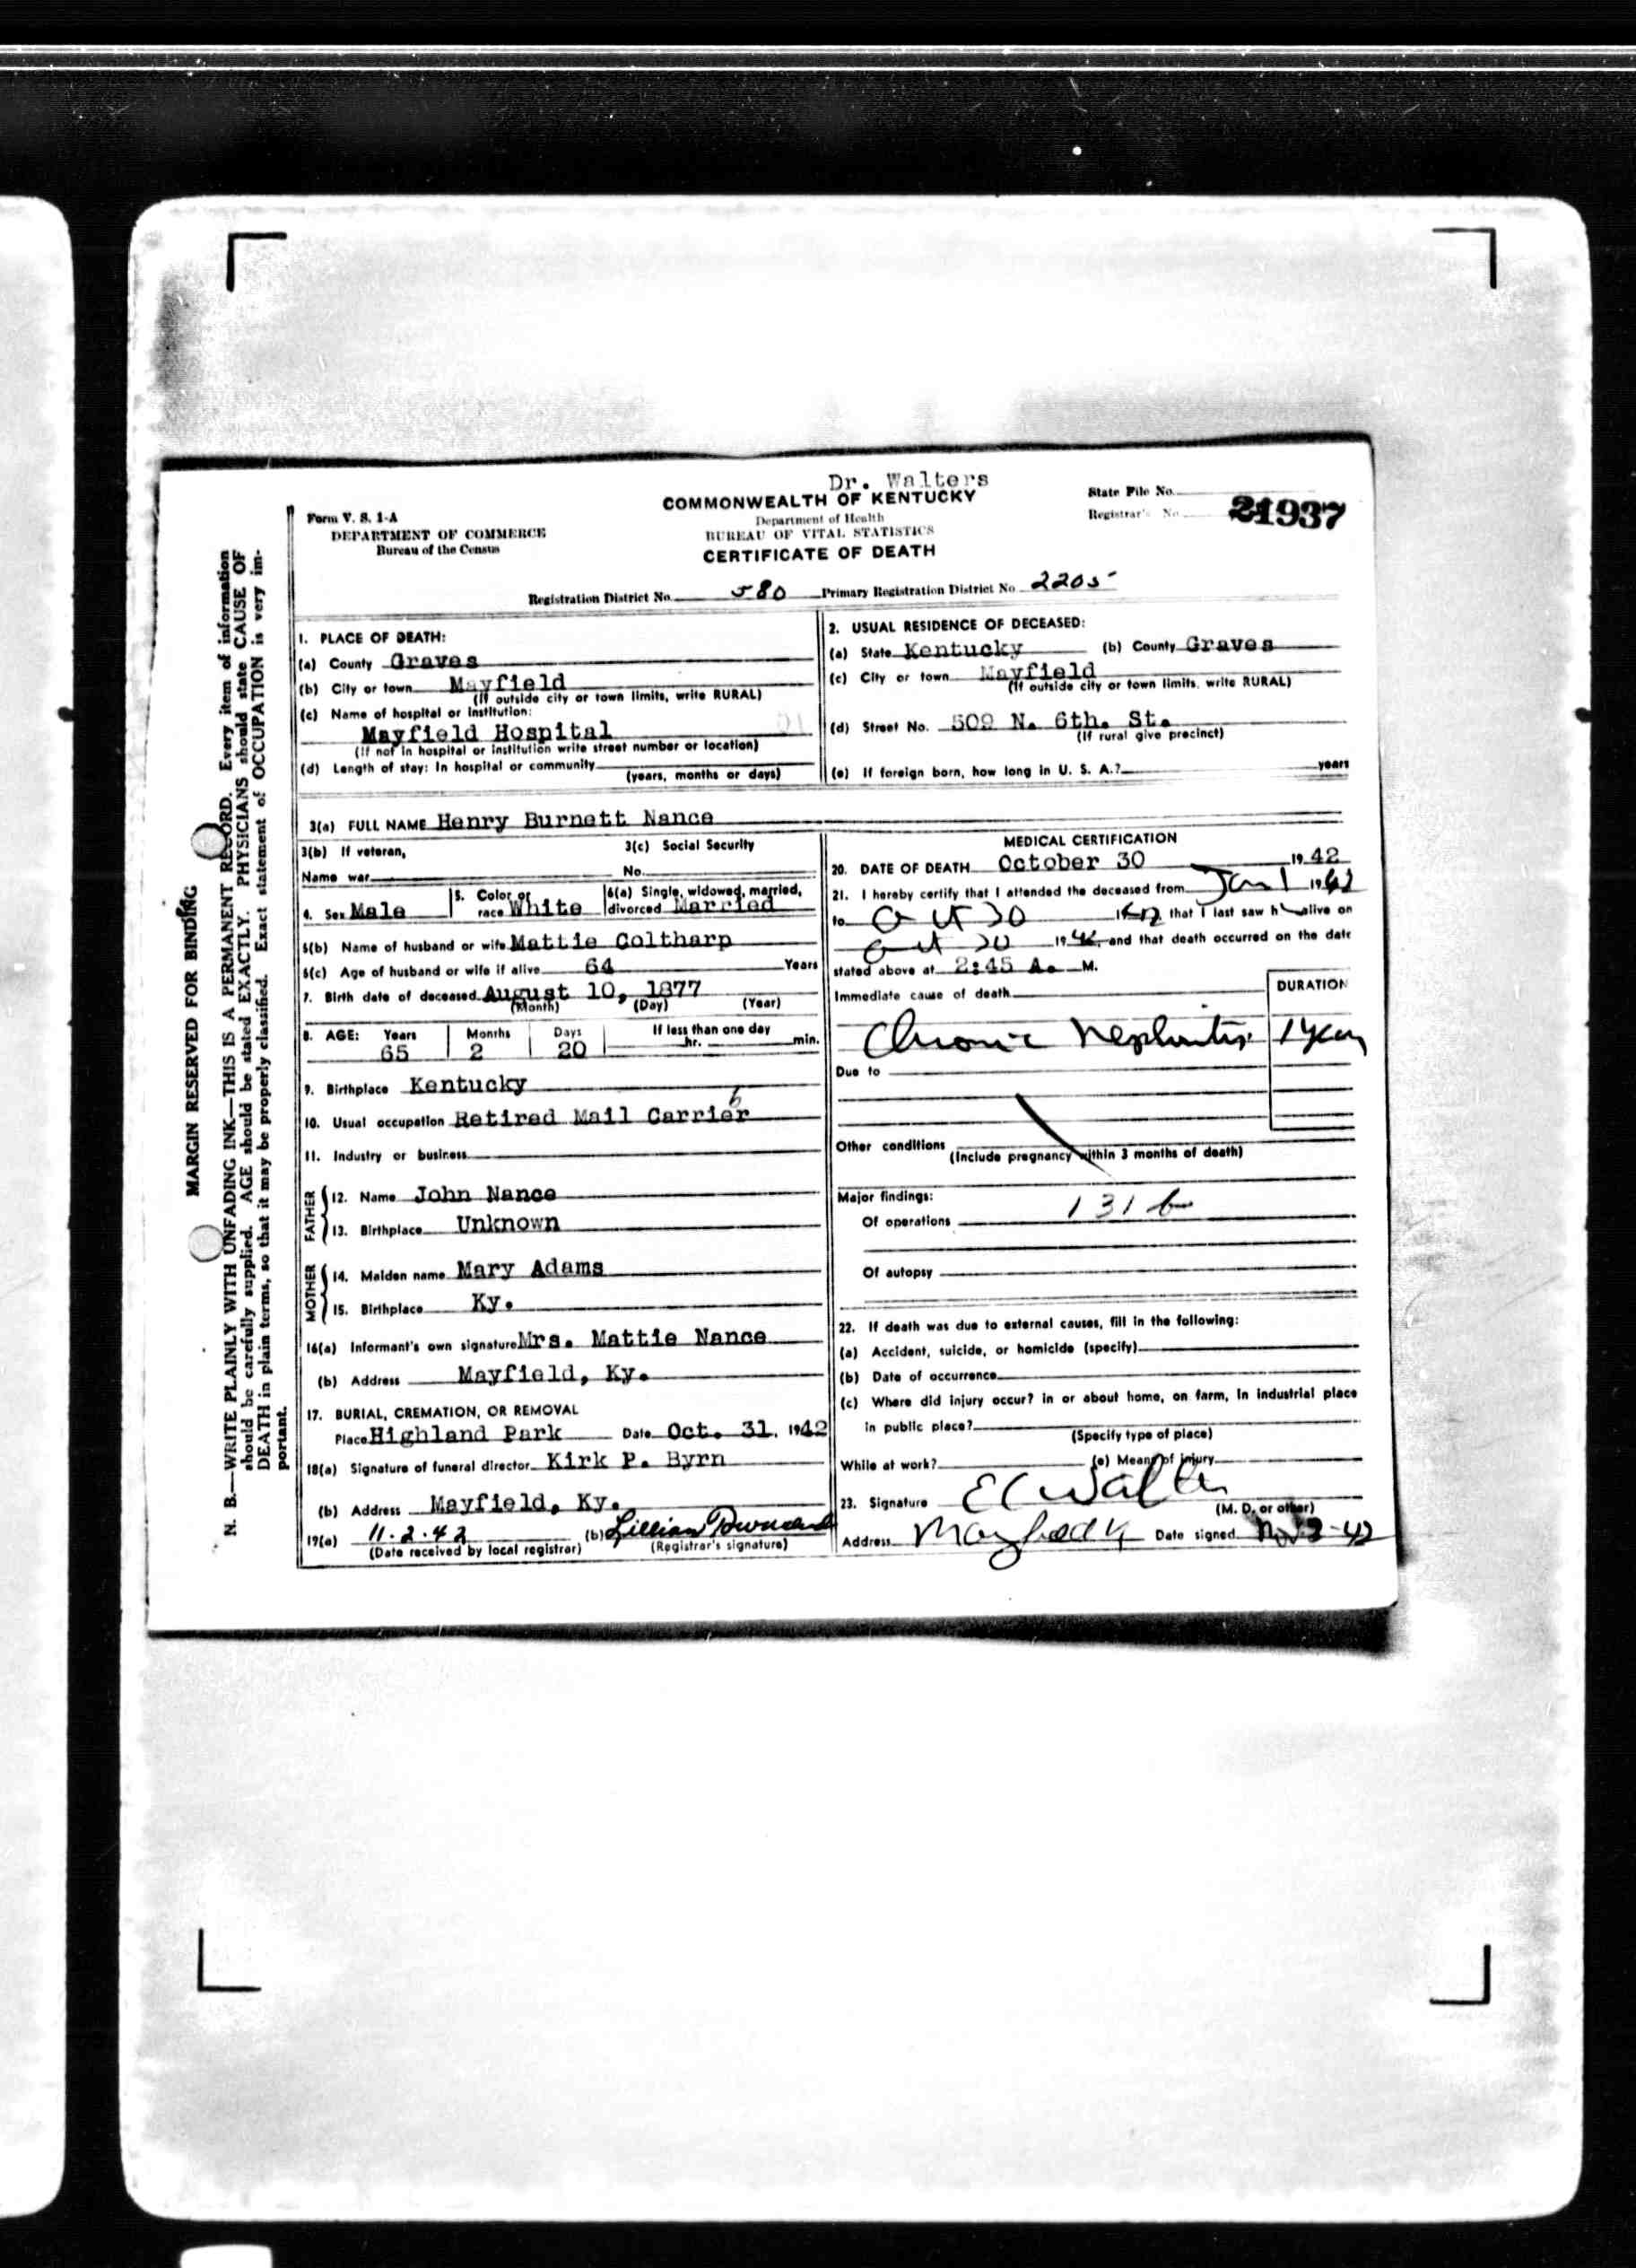 Dr. Walters
COMMONWEALTH OF KENTUCKY
Department of Health
BUREAU OF VITAL STATISTICS
CERTIFICATE OF DEATH
Form V. S. 1-A
DEPARTMENT OF COMMERCE
Bureau of the Census
State File No.
Registrar's No.
21937
Registration District No. 580 Primary Registration District No. 2205
1. PLACE OF DEATH:
(a) County Graves
(b) City or town Mayfield
(If outside city or town limits, write RURAL)
(c) Name of hospital or institution:
Mayfield Hospital
(If not in hospital or institution write street number or location)
(d) Length of stay: In hospital or community
(years, months or days)
2. USUAL RESIDENCE OF DECEASED:
(a) State Kentucky (b) County Graves
(c) City or town Mayfield
(If outside city or town limits, write RURAL)
(d) Street No. 509 N. 6th. St.
(If rural give precinct)
(e) If foreign born, how long in U. S. A.? years
3(a) FULL NAME Henry Burnett Nance
3(b) If veteran, 3(c) Social Security
Name war No.
4. Sex Male 5. Color or race White 6(a) Single, widowed, married, divorced Married
6(b) Name of husband or wife Mattie Coltharp
6(c) Age of husband or wife if alive 64 Years
7. Birth date of deceased August 10, 1877
(Month) (Day) (Year)
8. AGE: Years Months Days If less than one day
65 2 20 hr. min.
9. Birthplace Kentucky
10. Usual occupation Retired Mail Carrier
6
11. Industry or business
FATHER
12. Name John Nance
13. Birthplace Unknown
MOTHER
14. Maiden name Mary Adams
15. Birthplace Ky.
16(a) Informant's own signature Mrs. Mattie Nance
(b) Address Mayfield, Ky.
17. BURIAL, CREMATION, OR REMOVAL
Place Highland Park Date Oct. 31, 1942
18(a) Signature of funeral director Kirk P. Byrn
(b) Address Mayfield, Ky.
19(a) 11-2-42 (b) Lillian
(Date received by local registrar) (Registrar's signature)
MEDICAL CERTIFICATION
20. DATE OF DEATH October 30 1942
21. I hereby certify that I attended the deceased from Jan 1 1942
to Oct 30 1942 that I last saw h alive on
Oct 1942, and that death occurred on the date
stated above at 2:45 A. M.
Immediate cause of death DURATION
Chronic Nephritis 1 year
Due to
Other conditions
(Include pregnancy within 3 months of death)
Major findings:
Of operations 131 b
Of autopsy
22. If death was due to external causes, fill in the following:
(a) Accident, suicide, or homicide (specify)
(b) Date of occurrence
(c) Where did injury occur? in or about home, on farm, in industrial place
in public place?
(Specify type of place)
While at work? (e) Means of injury
23. Signature E C Walter
(M. D. or other)
Address Mayfield Ky Date signed Nov 2-42
MARGIN RESERVED FOR BINDING
N. B.—WRITE PLAINLY WITH UNFADING INK—THIS IS A PERMANENT RECORD. Every item of information
should be carefully supplied. AGE should be stated EXACTLY. PHYSICIANS should state CAUSE OF
DEATH in plain terms, so that it may be properly classified. Exact statement of OCCUPATION is very im-
portant.